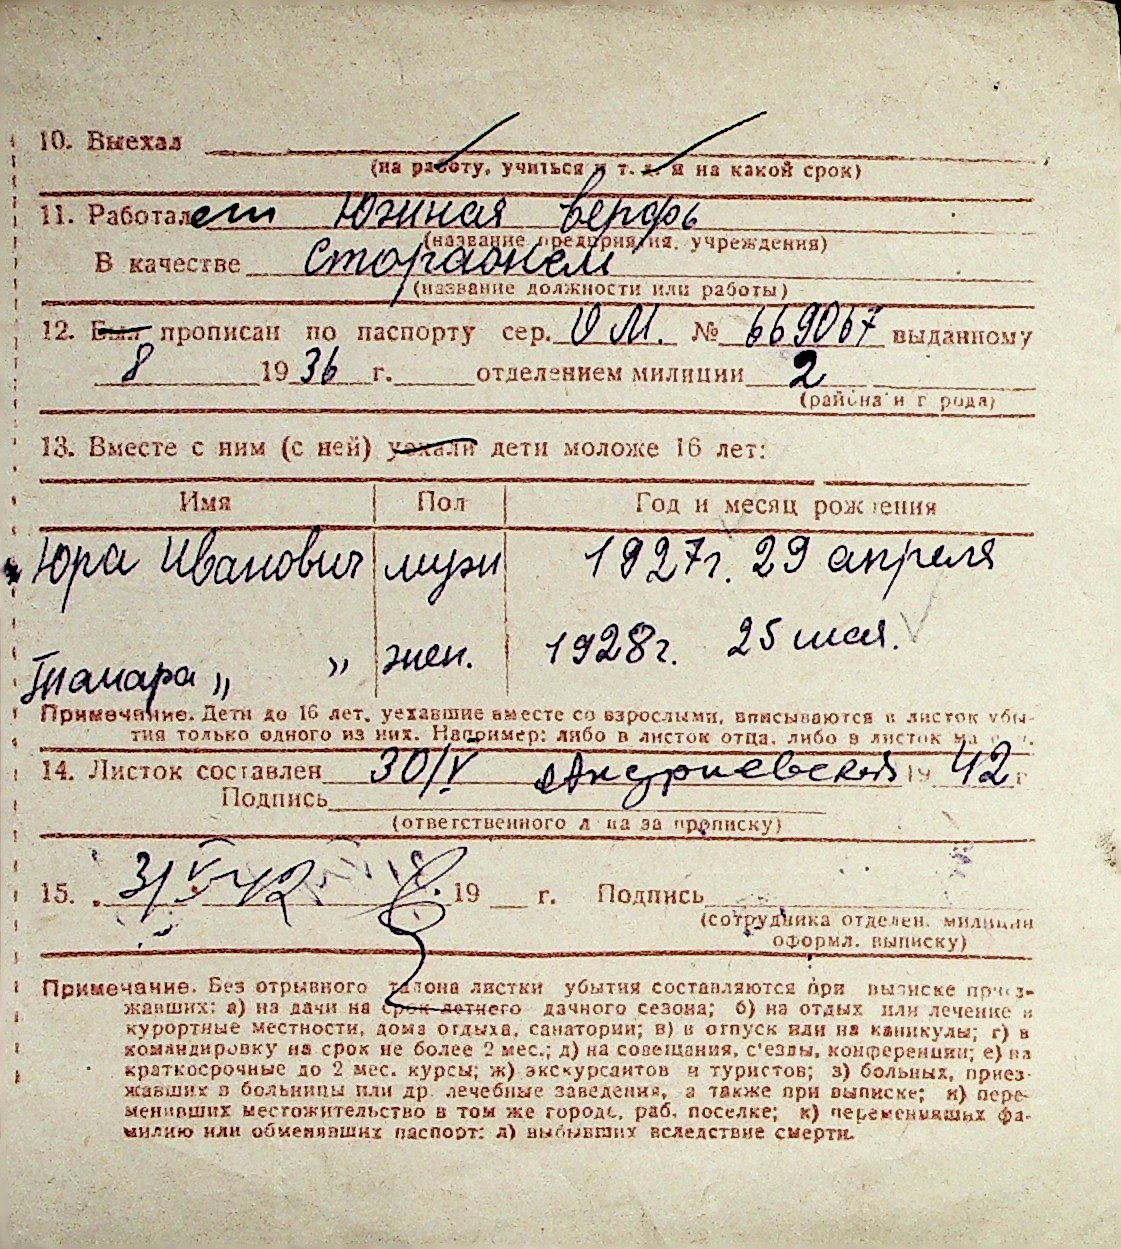 10. Выехал
(на работу, учиться и т. д. и на какой срок)
11. Работает Южная верфь
(название предприятия, учреждения)
В качестве Сторожем
(название должности или работы)
12. Был прописан по паспорту сер. ОМ. № 669067 выданному
8 1936 г. отделением милиции 2
(района и города)
13. Вместе с ним (с ней) уехали дети моложе 16 лет:
Имя Пол Год и месяц рождения
Юра Иванович муж 1927г. 29 апреля
Тамара „ „ жен. 1928г. 25 мая.
Примечание. Дети до 16 лет, уехавшие вместе со взрослыми, вписываются в листок убы-
тия только одного из них. Например: либо в листок отца, либо в листок
14. Листок составлен 30/V 1942 г
Подпись
(ответственного лица за прописку)
15. 3/V 42. 19 г. Подпись
(сотрудника отделен. милиции
оформл. выписку)
Примечание. Без отрывного талона листки убытия составляются при выписке приез-
жавших: а) на дачи на срок летнего дачного сезона; б) на отдых или лечение в
курортные местности, дома отдыха, санатории; в) в отпуск или на каникулы; г) в
командировку на срок не более 2 мес.; д) на совещания, с'езды, конференции; е) на
краткосрочные до 2 мес. курсы; ж) экскурсантов и туристов; з) больных, приез-
жавших в больницы или др. лечебные заведения, а также при выписке; и) пере-
менивших местожительство в том же городе, раб. поселке; к) переменивших фа-
милию или обменявших паспорт: л) выбывших вследствие смерти.